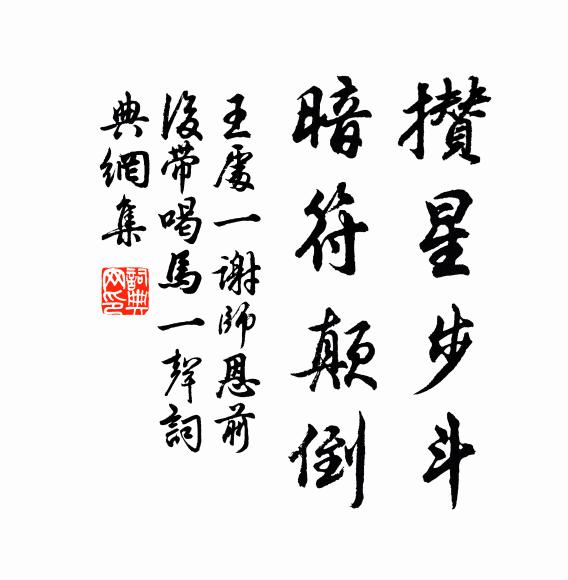 攢星步斗
暗符顛倒
王處一謝師恩前
後帶喝馬一聲詞
典網集
詞典
网印